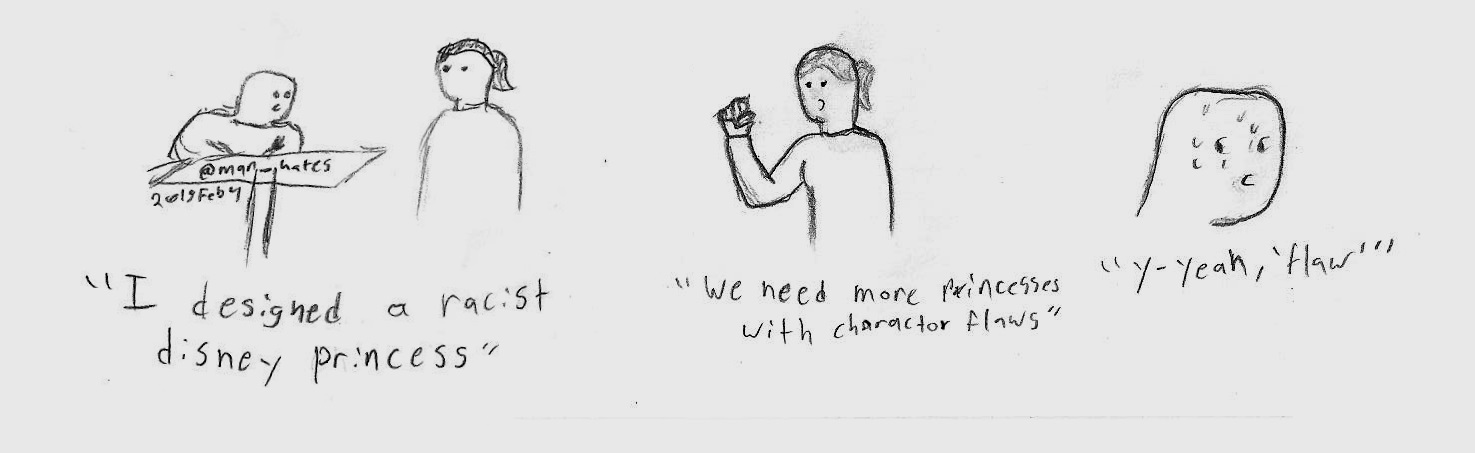 @man_hates
2019Feb4
"I designed a racist
disney princess"
"We need more princesses
with charactor flaws"
"Y-yeah, 'flaw'"